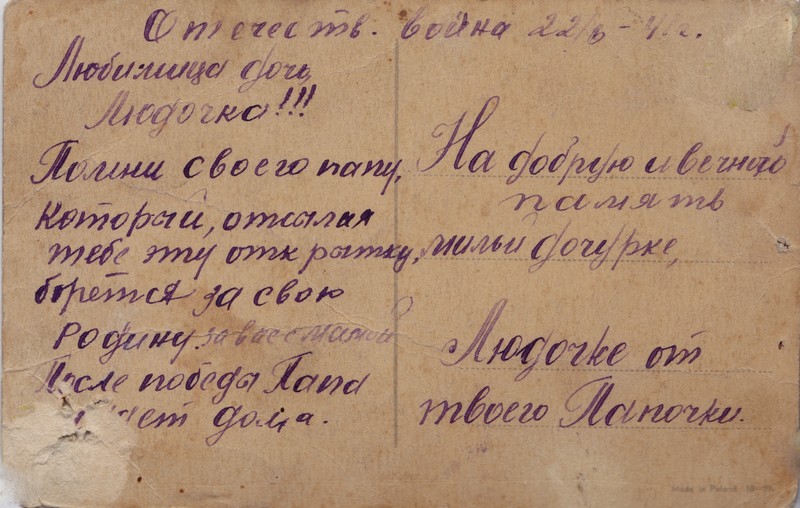 Отечеств. война 22/6-41г.
Любимица дочь
Людочка!!!
Помни своего папу,
который, отсылая
тебе эту открытку,
борется за свою
Родину за вас с мамой
После победы Папа
дома.
На добрую и вечную
память
милой дочурке,
Людочке от
твоего Папочки.
Made in Poland